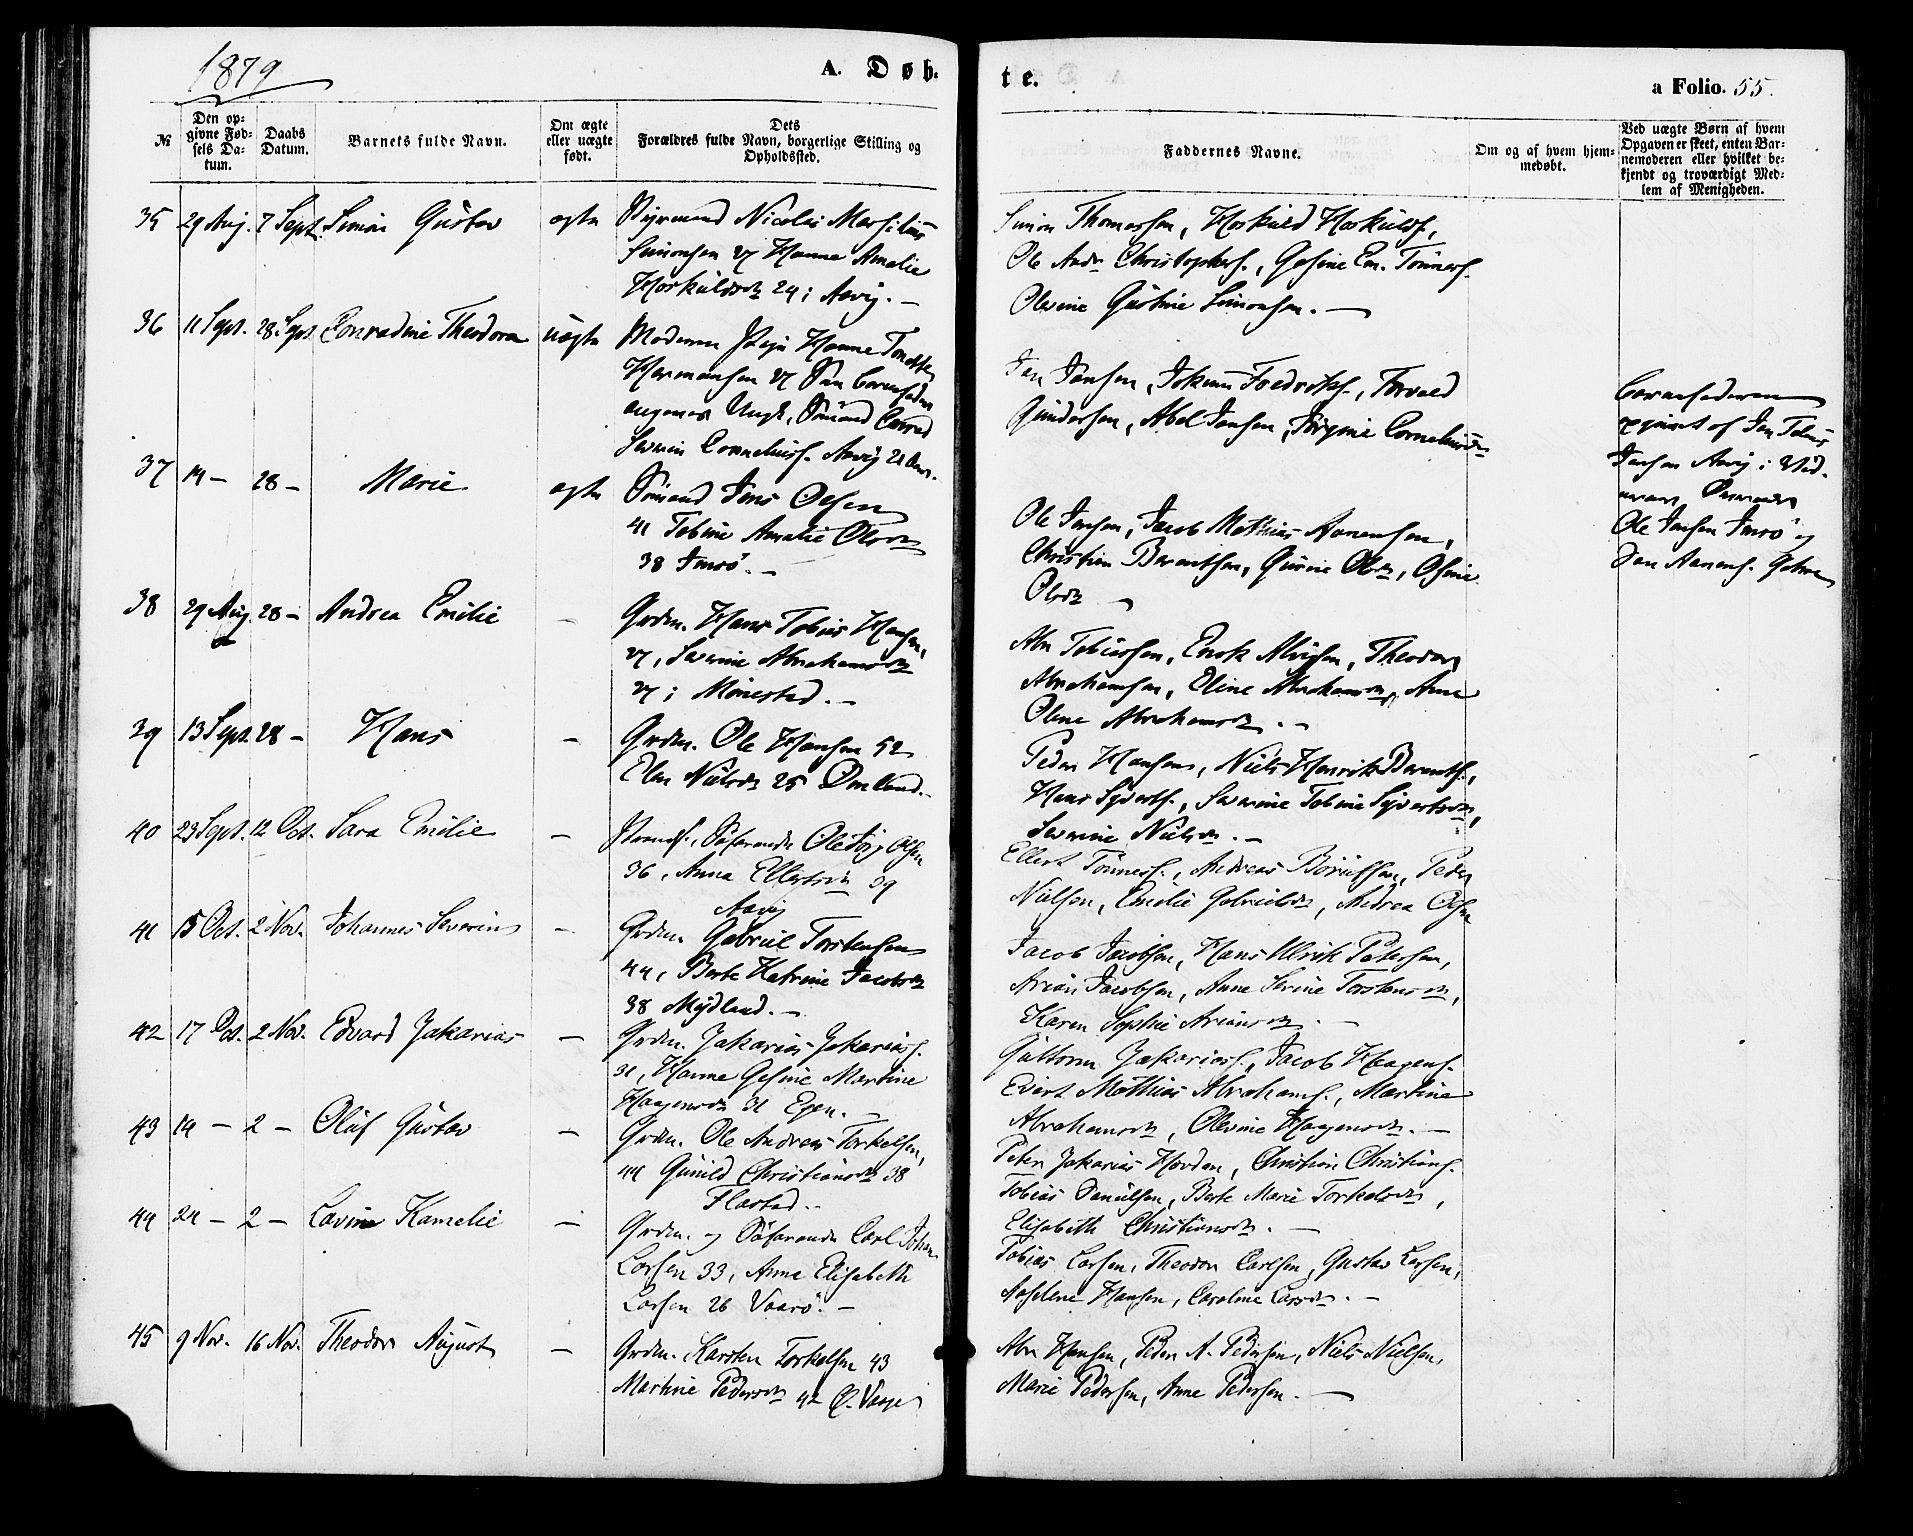 1879
A. Døb-
te.
a Folio. 55.
№
Den op-
givne Fød-
sels Da-
tum.
Daabs
Datum.
Barnets fulde Navn.
Om ægte
eller uægte
født.
Dets
Forældres fulde Navn, borgerlige Stilling og
Opholdssted.
Faddernes Navne.
Om og af hvem hjem-
medøbt.
Ved uægte Børn af hvem
Opgaven er skeet, enten Bar-
nemoderen eller hvilket be-
kjendt og troværdigt Med-
lem af Menigheden.
35 29 Aug. 7 Sept. Simon Gustav ægte Nicolai
Simonsen 27 Hanne Amalie
24 i Aavig. —
Simon Thomassen,
Ole Andr. Christophers., Gesine Em. Tønnes.
Olevine Gustine Simonsen. —
36 11 Sept. 28 Sept. Conradine Theodora uægte Moderen Pige Hanne
Hermansen 27
Ungk. Sømand Conrad
Severin Corneliuss. Aavig 21 Aar.
Jan Jansen, Jokum Fredriks., Torvald
Gundersen, Abel Jansen, Corneliusdr.
Barnefaderen
opgivet af Jan Tobias
Jansen Aavig i
Ole Jansen Imsö og
Jan Aanens.
37 14 — 28 — Marie ægte Sømand Jens Olsen
41 Tobine Amalie Olsdr.
38 Imsö. —
Ole Jansen, Jacob Mathias Aanensen,
Christian Berentsen, Gurine Olsdr., Osmine
Olsdr. —
38 29 Aug. 28 — Andrea Emilie — Grdm. Hans Tobias Hansen,
27, Severine Abrahamsdr.
27 i Mønestad. —
Abr. Tobiassen, Enok Alvigsen, Theodor
Abrahamsen, Eline Abrahamsdr., Anne
Olene Abrahamsdr. —
39 13 Sept. 28 — Hans — Grdm. Ole Hansen 52
Elen Nielsdr. 25 Omland. —
Peder Hansen, Niels Henrik Berents.,
Hans Syverts., Severine Tobine Syvertsdr.,
Severine Nielsdr. —
40 23 Sept. 12 Oct. Sara Emilie — Søfarende Ole Olsen
36, Anna Ellertsdr. 39
Aavig
Ellert Tønness., Andreas Peder
Nielsen, Emilie Gabrielsdr., Andrea Olsen
41 15 Oct. 2 Nov. Johannes Severin — Grdm. Gabriel Torstensen
44, Berte Katrine Jacobsdr.
38 Mydland. —
Jacob Jacobsen, Hans Ulrik Petersen,
Arian Jacobsen, Anne Serine Torstensdr.,
Karen Sophie Ariansdr. —
42 17 Oct. 2 Nov. Edvard Zakarias — Grdm. Zakarias Zakariass.
31, Hanne Gesine Martine
Haagensdr. 31 Egen. —
Guttorm Zakariass., Jacob Haagens.
Evert Mathias Abrahams., Martine
Abrahamsdr., Olevine Haagensdr. —
43 14 — 2 — Oluf Gustav — Grdm. Ole Andreas Torkelsen,
44 Gunild Christiansdr. 38
Flastad. —
Peter Zakarias Hovden, Christian Christians.
Tobias Danielsen, Berte Marie Torkelsdr.,
Elisabeth Christiansdr. —
44 24 — 2 — Lavine Kamelie — Grdm. og Søfarende Carl Johan
Larsen 33, Anne Elisabeth
Larsen 26 Vaarö. —
Tobias Larsen, Theodor Carlsen, Gustav Larsen,
Hansen, Caroline Larsdr. —
45 9 Nov. 16 Nov. Theodor August — Grdm. Karsten Torkelsen 43
Martine Pedersdr. 42 Ø. Vaage
Abr. Hansen, Peder A. Pedersen, Niels Nielsen,
Marie Pedersen, Anne Pedersen. —